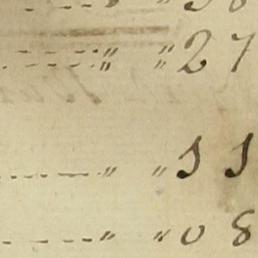 ------〃 〃27
------〃 〃11
------〃 〃08